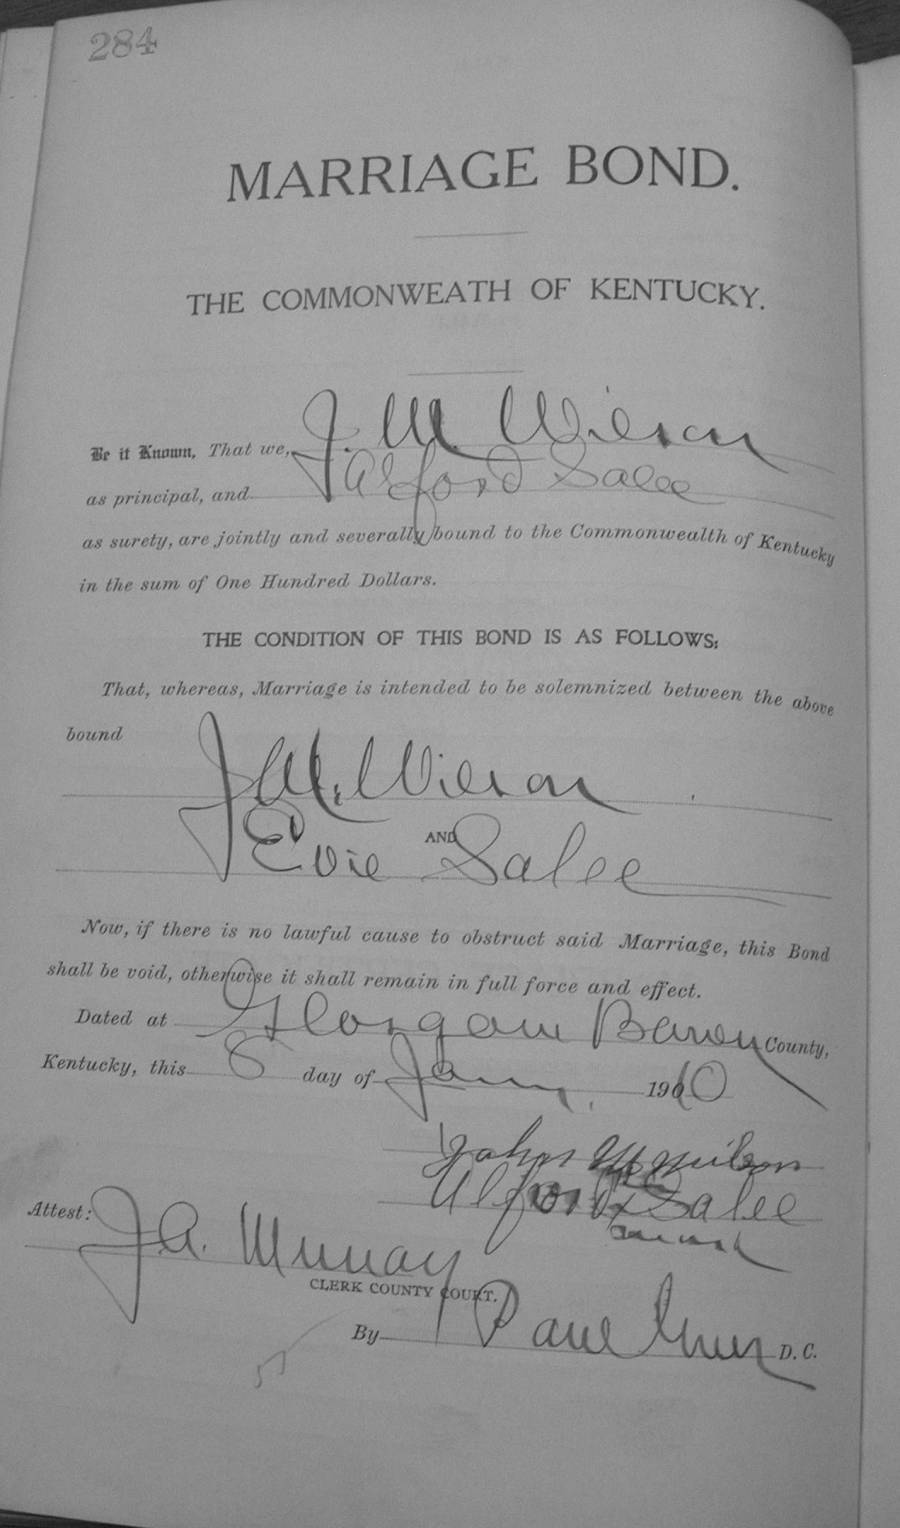 284
MARRIAGE BOND.
THE COMMONWEATH OF KENTUCKY.
Be it Known, That we, J. M Wilson
as principal, and Alford Salee
as surety, are jointly and severally bound to the Commonwealth of Kentucky
in the sum of One Hundred Dollars.
THE CONDITION OF THIS BOND IS AS FOLLOWS:
That, whereas, Marriage is intended to be solemnized between the above
bound
J M. Wilson
AND
Evie Salee
Now, if there is no lawful cause to obstruct said Marriage, this Bond
shall be void, otherwise it shall remain in full force and effect.
Dated at Glasgow Barren County,
Kentucky, this 8 day of Jan. 1910
John M wilson
Alford x Salee
mark
Attest: J.A. Murray
CLERK COUNTY COURT.
By Paul Greer D. C.